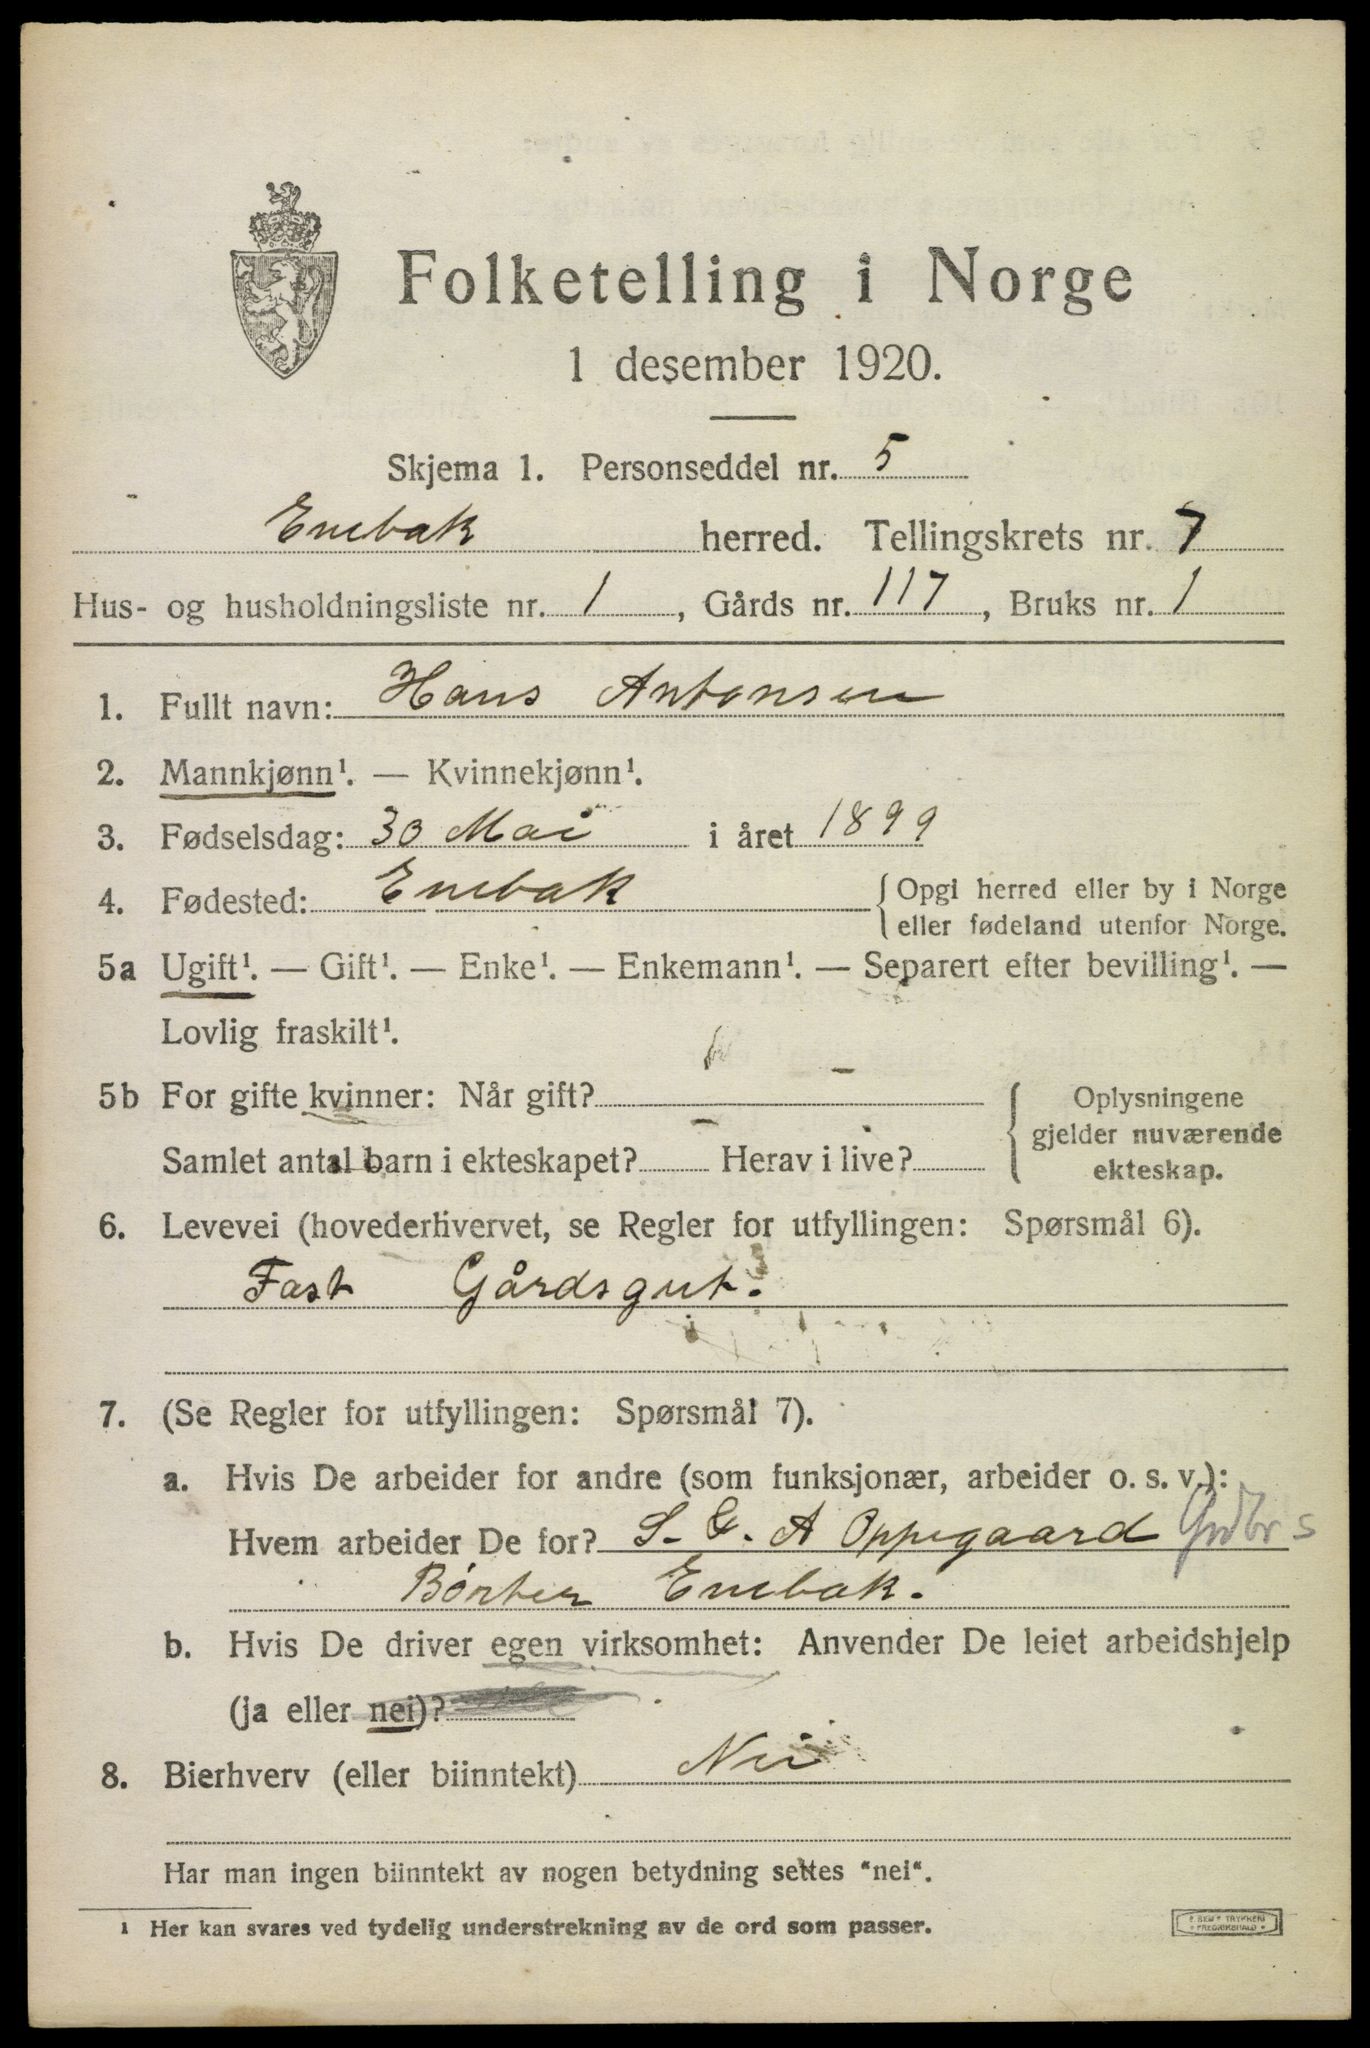 Folketelling i Norge
1 desember 1920.
Skjema 1. Personseddel nr. 5
Enebak herred. Tellingskrets nr. 7
Hus- og husholdningsliste nr. 1, Gårds nr. 117, Bruks nr. 1
1. Fullt navn: Hans Antonsen
2. Mannkjønn¹. — Kvinnekjønn¹.
3. Fødselsdag: 30 Mai i året 1899
4. Fødested: Enebak { Opgi herred eller by i Norge
eller fødeland utenfor Norge.
5a Ugift¹. — Gift¹. — Enke¹. — Enkemann¹. — Separert efter bevilling¹. —
Lovlig fraskilt¹.
5b For gifte kvinner: Når gift? –
Samlet antal barn i ekteskapet? – Herav i live?
{ Oplysningene
gjelder nuværende
ekteskap.
6. Levevei (hovederhvervet, se Regler for utfyllingen: Spørsmål 6).
Fast Gårdsgut.
7. (Se Regler for utfyllingen: Spørsmål 7).
a. Hvis De arbeider for andre (som funksjonær, arbeider o. s. v.):
Hvem arbeider De for? S. G. A Oppegaard Grdbr s
Børter Enebak.
b. Hvis De driver egen virksomhet: Anvender De leiet arbeidshjelp
(ja eller nei)?
8. Bierhverv (eller biinntekt) Nei
Har man ingen biinntekt av nogen betydning settes "nei".
¹ Her kan svares ved tydelig understrekning av de ord som passer.
TRYKKERI
FREDRIKSHALD